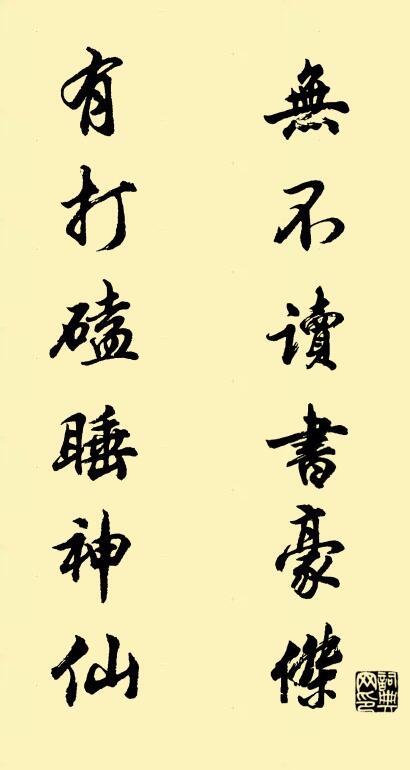 無不讀書豪傑
有打磕睡神仙
詞典網印